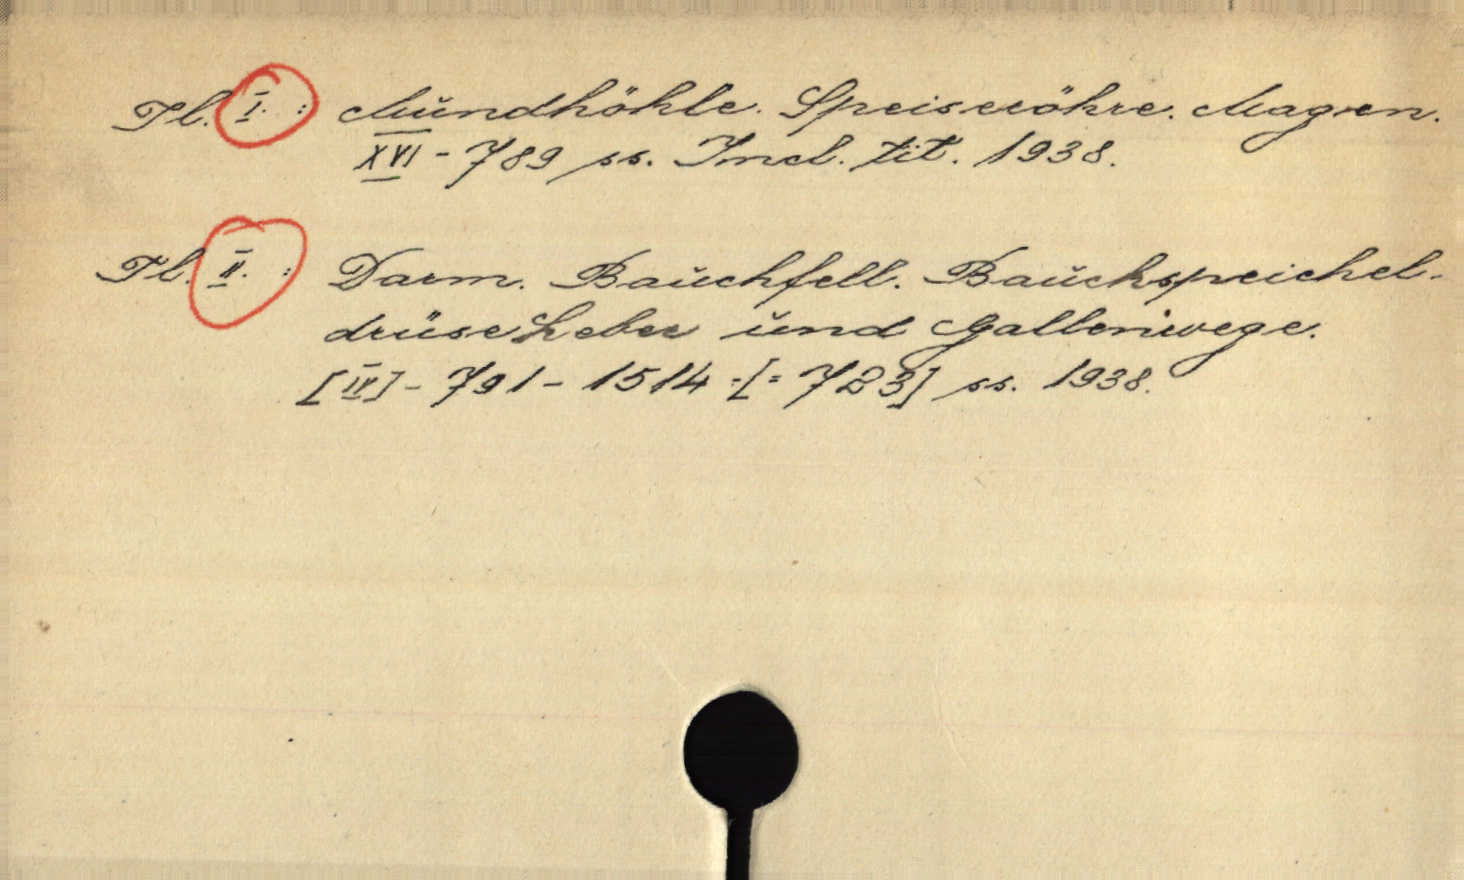 Tl. I. : Mundhöhle. Speiseröhre. Magen.
XVI - 789 ss. Incl. tit. 1938.
Tl. II. : Darm. Bauchfell. Bauchspeichel-
drüse Leber und Gallenwege.
[IV] - 791 - 1514 =[= 723] ss. 1938.